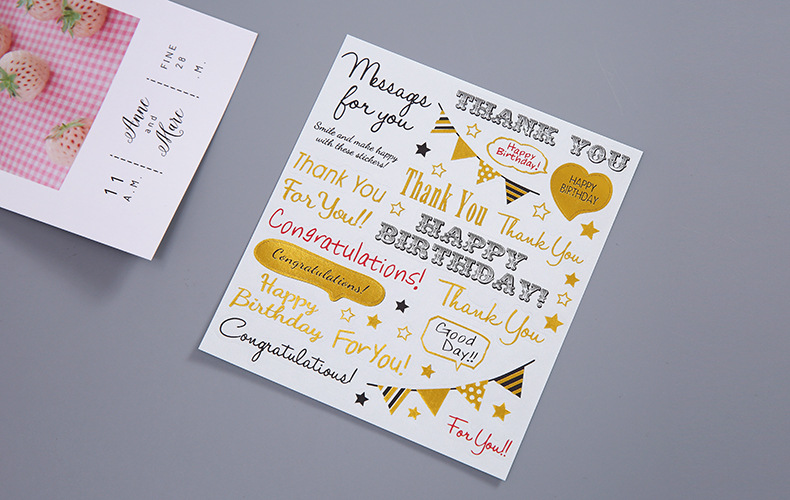 FINE
28
.M.
Anne
and
Marc
11
A.M.
Messages
for you
Smile and make happy
with these stickers!
THANK YOU
Happy
Birthday!
HAPPY
BIRTHDAY
Thank You
For You!!
Thank You
Thank You
Congratulations!
HAPPY
BIRTHDAY!
Congratulations!
Thank You
Happy
Birthday
For You!
Good
Day!!
Congratulations!
For You!!